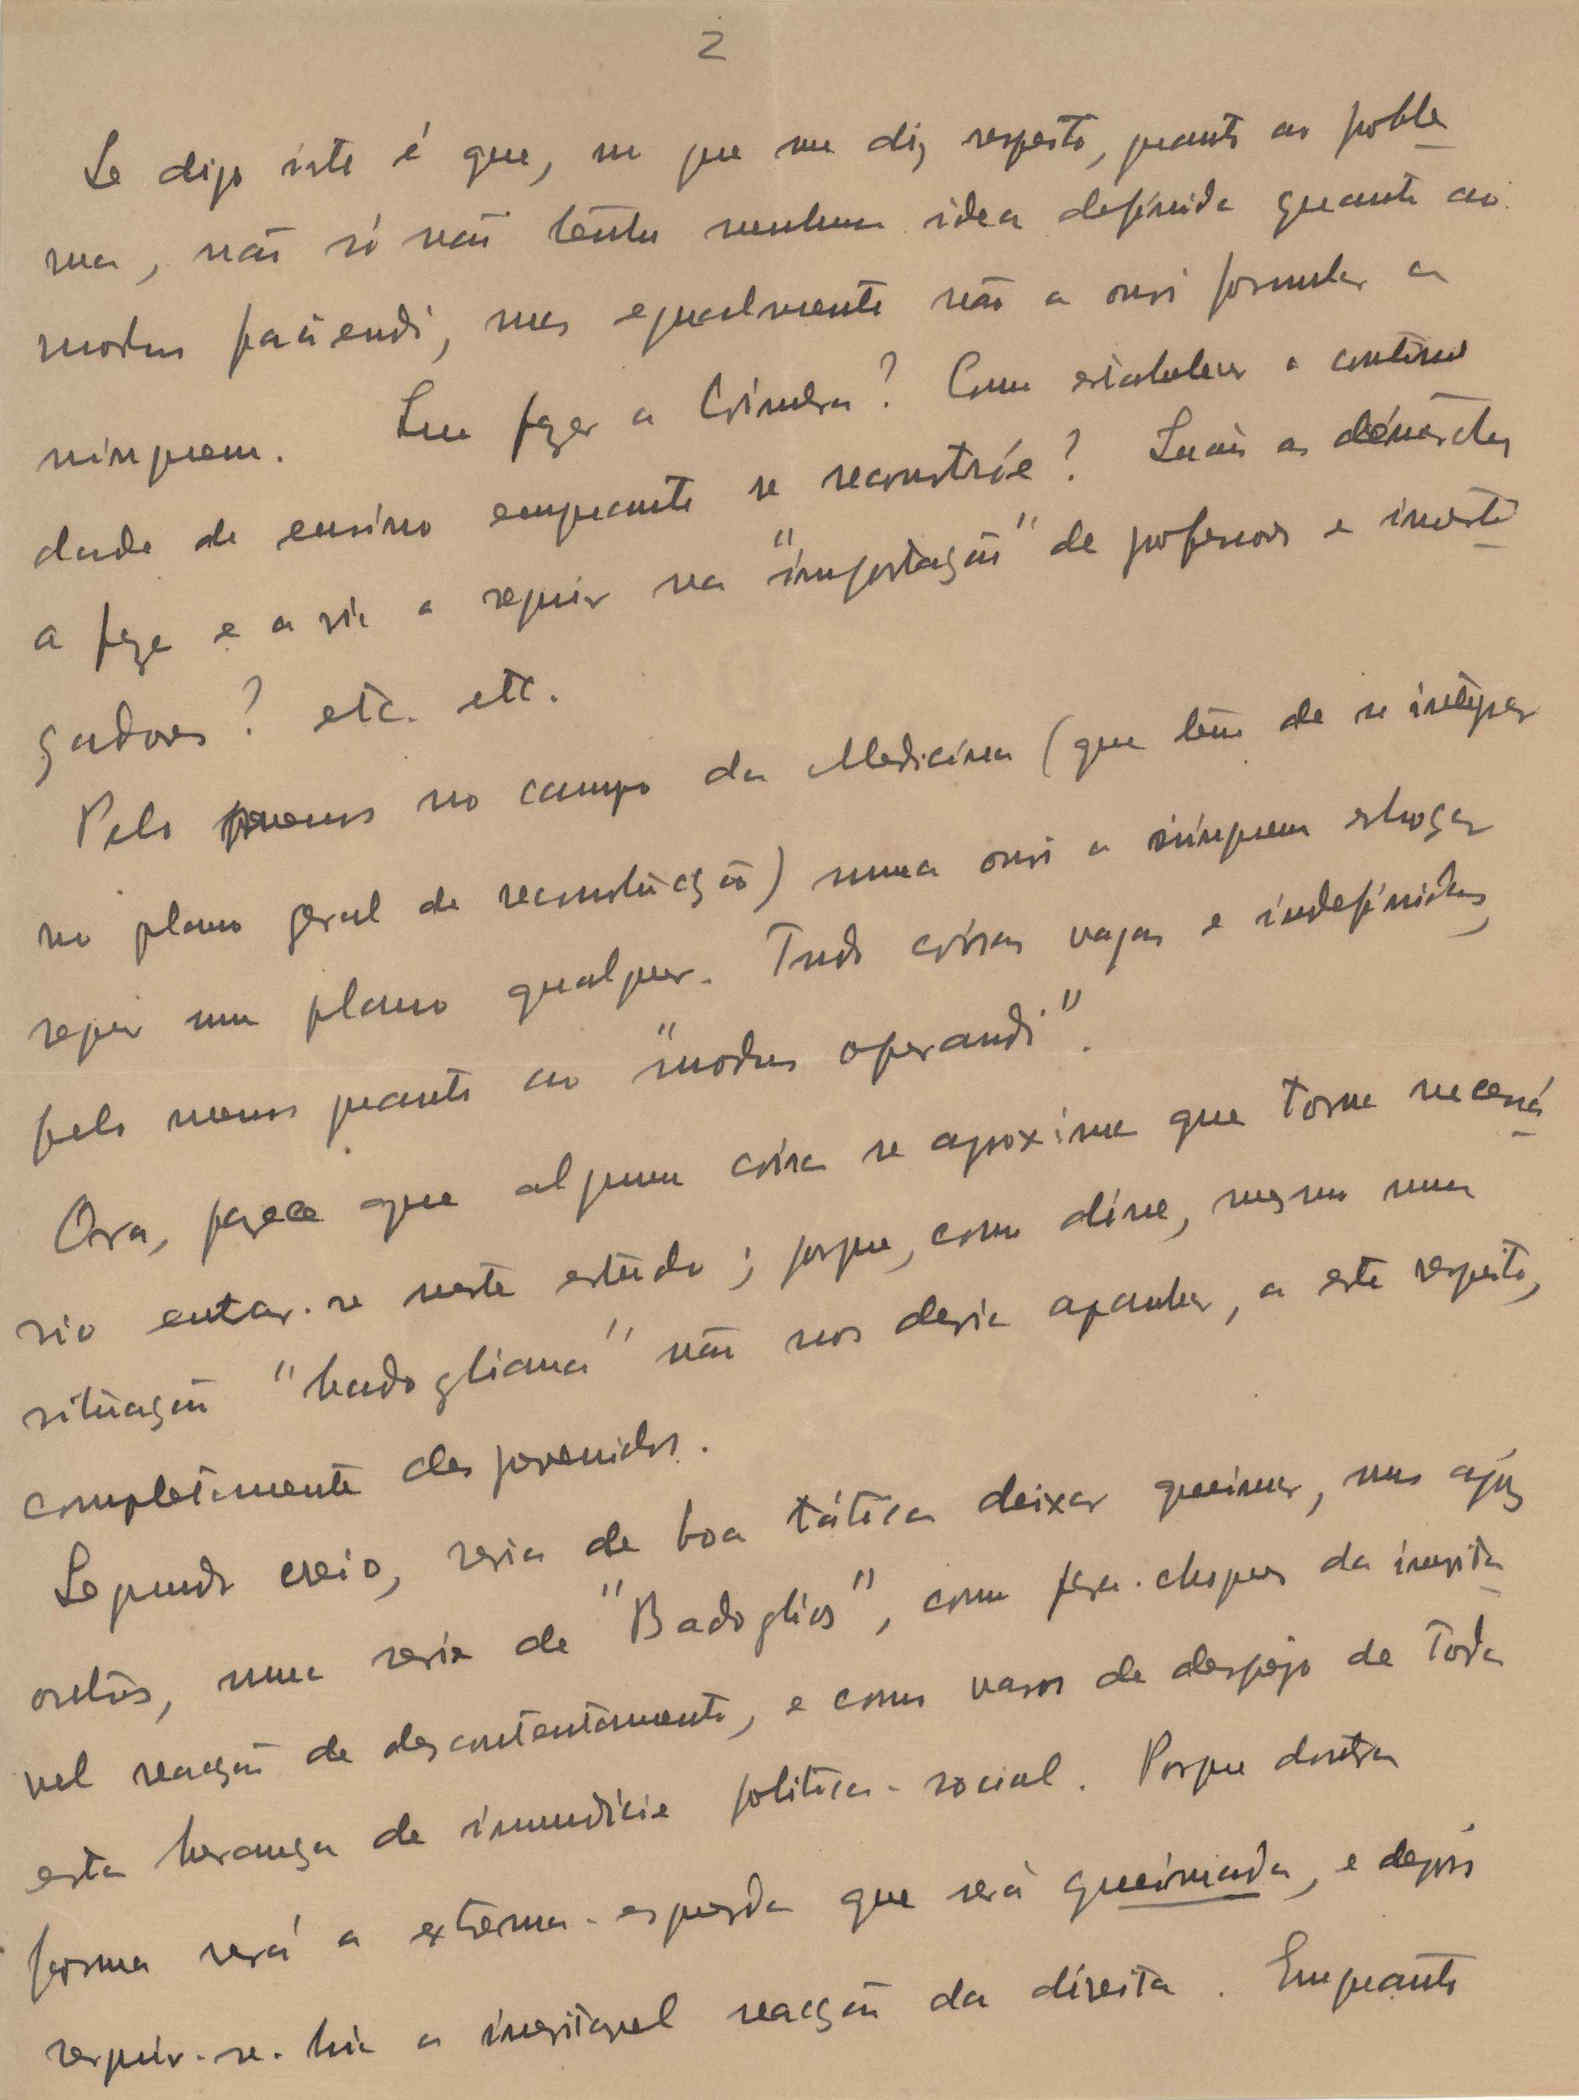 2
Se digo isto é que, no que me diz respeito, quanto ao proble
ma, não só não tenho nenhuma idea definida quanto ao
modus faciendi, mas egualmente não a ouvi formular a
ninguem. Que fazer a Coimbra? Como estabelecer a continui
dade de ensino emquanto se reconstróe? Quais as démarches
a fazer e a via a seguir na "importação" de professores e investi
gadores? etc. etc.
Pelo menos no campo da Medicina (que tem de se integrar
no plano geral de reconstrução) nunca ouvi a ninguem esboçar
sequer um plano qualquer. Tudo coisas vagas e indefinidas,
pelo menos quanto ao "modus operandi".
Ora, parece que alguma coisa se aproxima que torne necessá
rio entrar-se neste estudo; porque, como disse, mesmo uma
situação "badogliana" não nos devia apanhar, a este respeito,
completamente desprevenidos.
Segundo creio, seria de boa tática deixar queimar, nos ajus
outros, uma serie de "Badoglios", como para-choques da inevita
vel reacção de descontentamento, e como vasos de despejo de toda
esta herança de imundicie politica-social. Porque doutra
forma será a extrema-esquerda que será queimada, e depois
seguir-se-hia a inevitavel reacção da direita. Emquanto